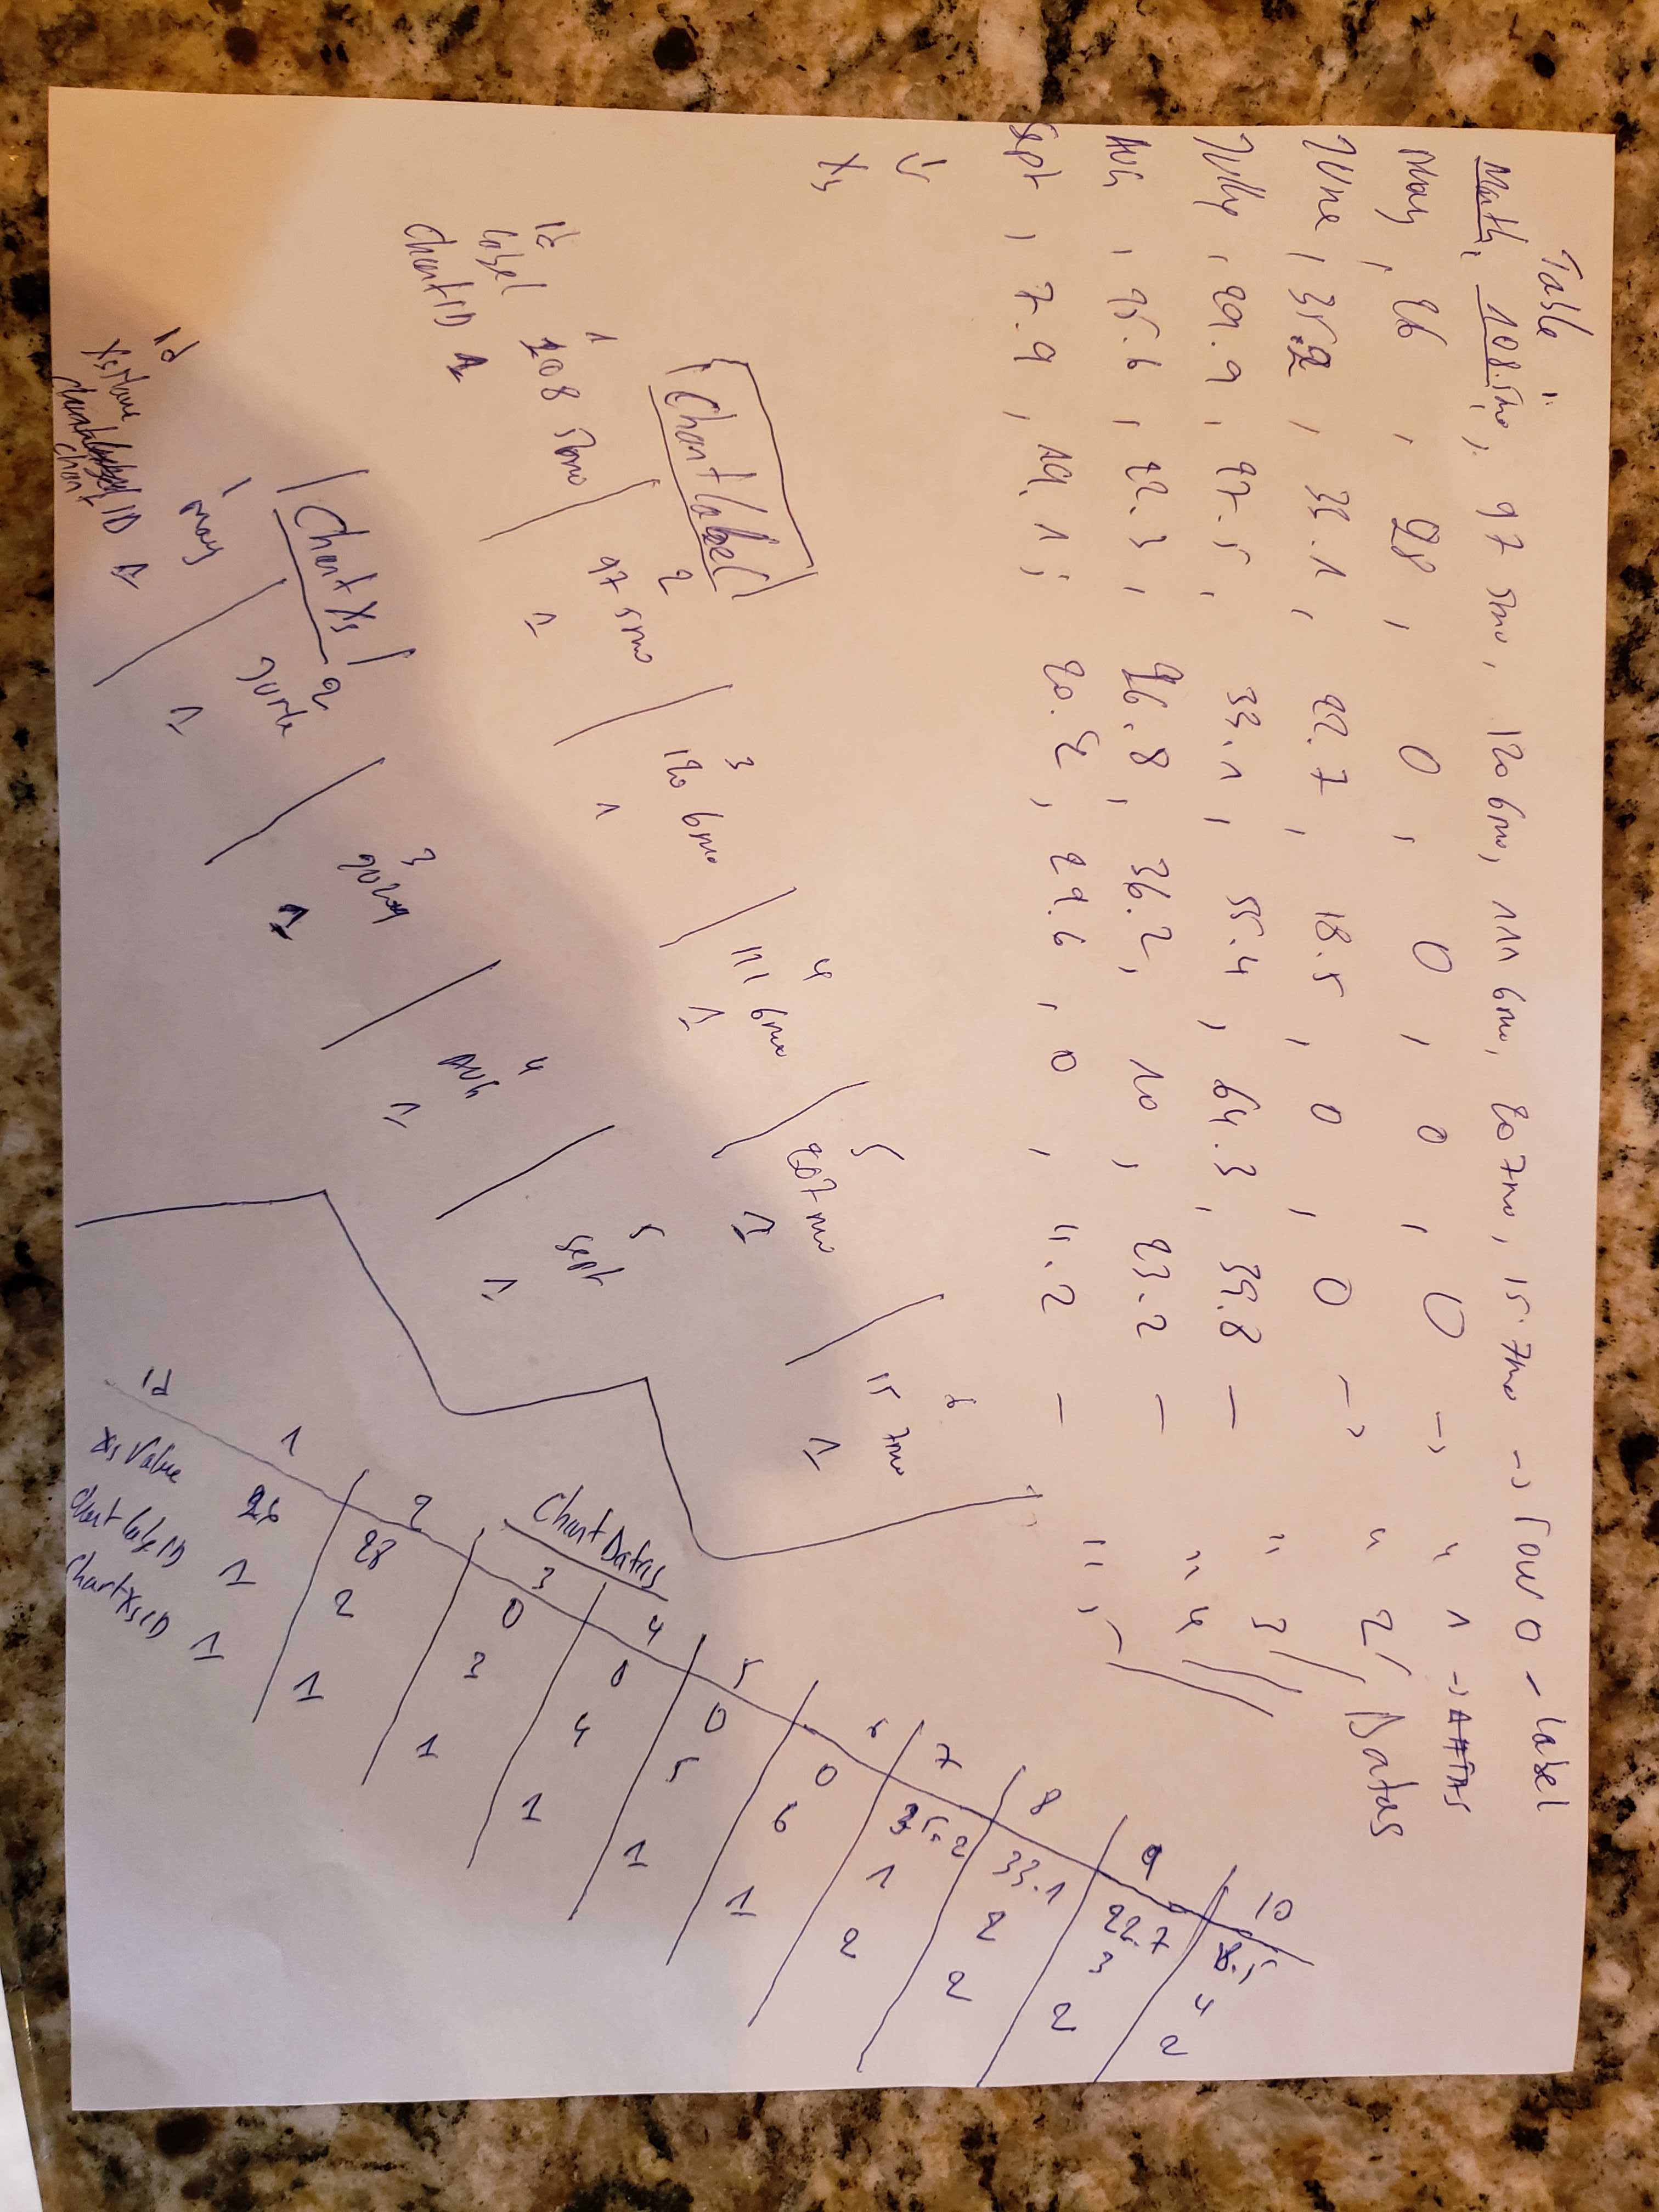 Table :
Month, 108 5mo, 97 5mo, 120 6mo, 111 6mo, 207mo, 15 7mo -> row 0 - label
May, 26, 28, 0, 0, 0, 0 -> " 1 ->
June, 35.2, 33.1, 22.7, 18.5, 0, 0 -> " 2 / Datas
29.9, 27.5, 33.1, 55.4, 64.3, 39.8 - " 3 /
AUG, 25.6, 22.3, 26.8, 36.2, 10, 23.2 - " 4 //
Sept, 7.9, 19.1, 20.2, 29.6, 0, 11.2 - " 5 //
Xs
Chart label
Id 1 2 3 4 5 6
label 108 5mo 97 5mo 120 6mo 111 6mo 207mo 15 7mo
chart ID 1 1 1 1 1 1
Chart Xs
Id 1 2 3 4 5
May June AUG Sept
chart ID 1 1 1 1 1
Chart Datas
Id 1 2 3 4 5 6 7 8 9 10
Xs Value 26 28 0 0 0 0 35.2 33.1 22.7 8.5
Chart label ID 1 2 3 4 5 6 1 2 3 4
Chart Xs ID 1 1 1 1 1 1 2 2 2 2